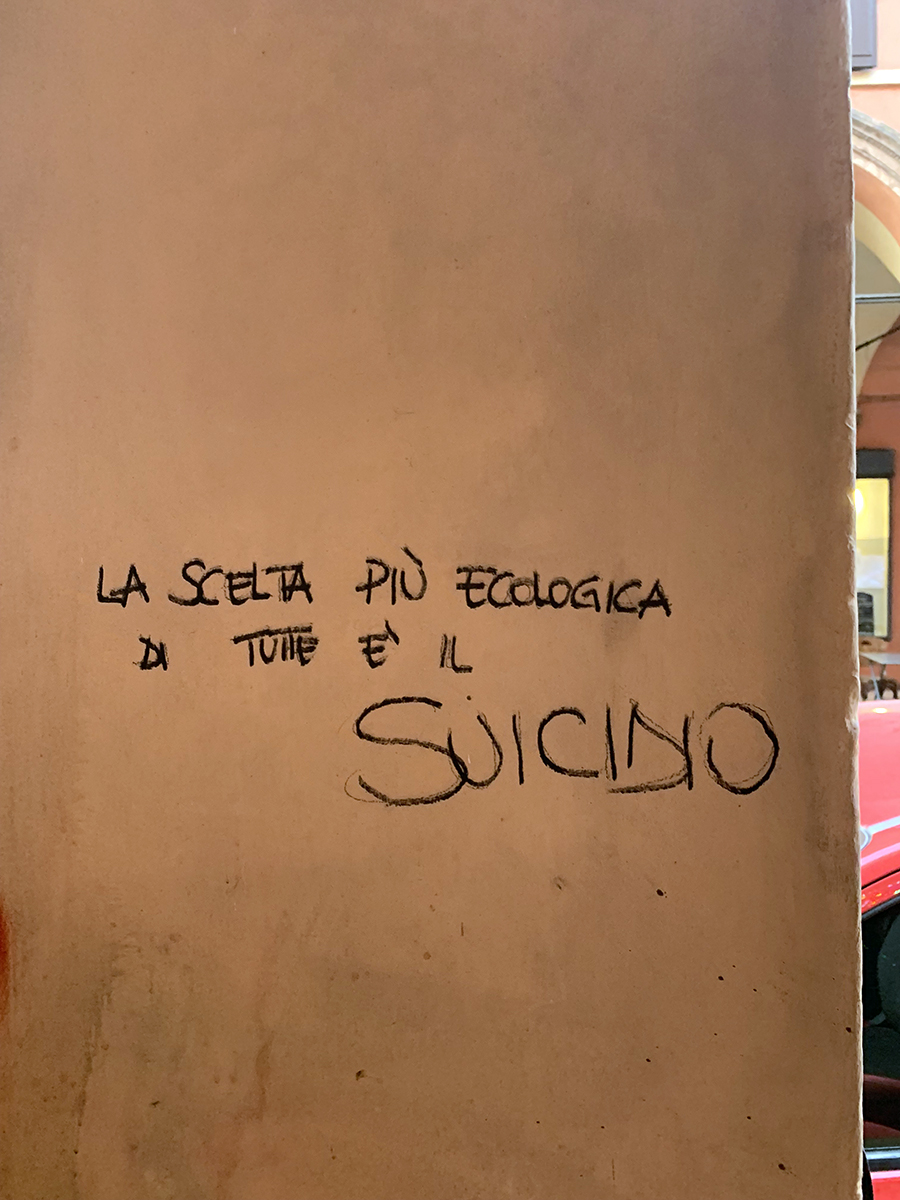 LA SCELTA PIÙ ECOLOGICA
DI TUTTE E' IL
SUICIDIO